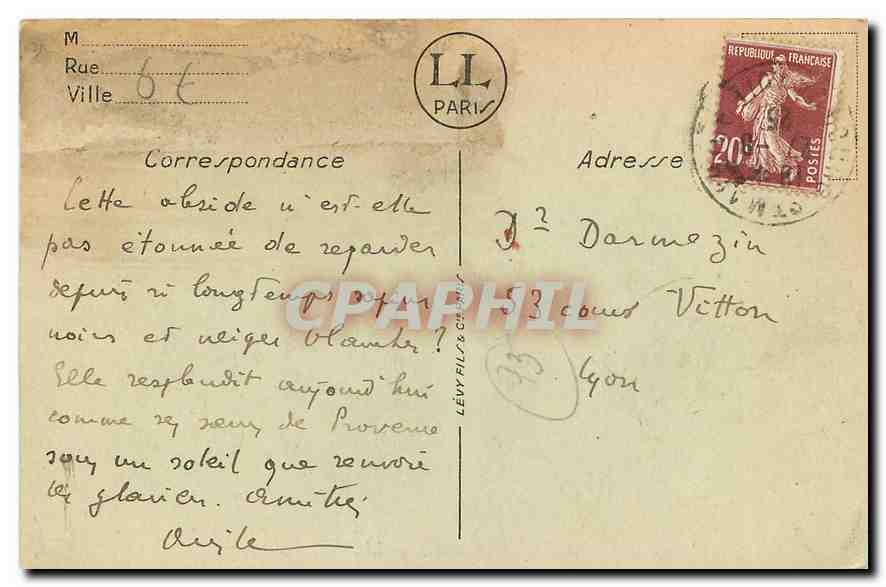 M
Rue
Ville 6 €
LL
PARIS
RÉPUBLIQUE FRANÇAISE
20
POSTES
Correspondance
Adresse
Cette abside n'est-elle
pas étonnée de regarder
depuis si longtemps sapins
noirs et neiges blanches?
Elle resplendit aujourd'hui
comme ses soeurs de Provence
sous un soleil que renvoie
les glaciers. Amitiés
Dr Darmezin
53 cours Vitton
Lyon
LÉVY FILS & Cie PARIS
CPAPHIL